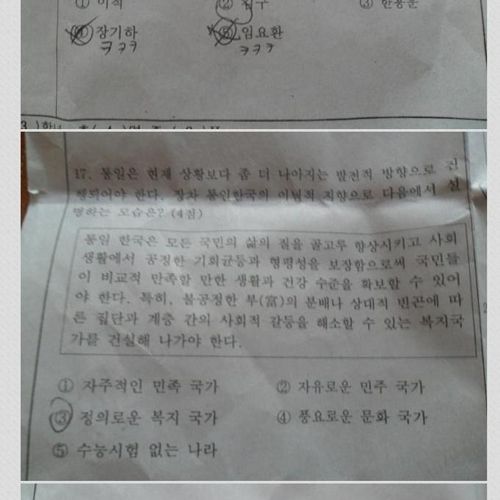 ① 이적
③ 한용운
④ 장기하
⑤ 임요환
ㅋㅋㅋ
ㅋㅋㅋ
17. 통일은 현재 상황보다 좀 더 나아지는 발전적 방향으로 진
행되어야 한다. 장차 통일한국의 이념적 지향으로 다음에서 설
명하는 모습은? (4점)
통일 한국은 모든 국민의 삶의 질을 골고루 향상시키고 사회
생활에서 공정한 기회균등과 형평성을 보장함으로써 국민들
이 비교적 만족할 만한 생활과 건강 수준을 확보할 수 있어
야 한다. 특히, 불공정한 부(富)의 분배나 상대적 빈곤에 따
른 집단과 계층 간의 사회적 갈등을 해소할 수 있는 복지국
가를 건설해 나가야 한다.
① 자주적인 민족 국가
② 자유로운 민주 국가
③ 정의로운 복지 국가
④ 풍요로운 문화 국가
⑤ 수능시험 없는 나라